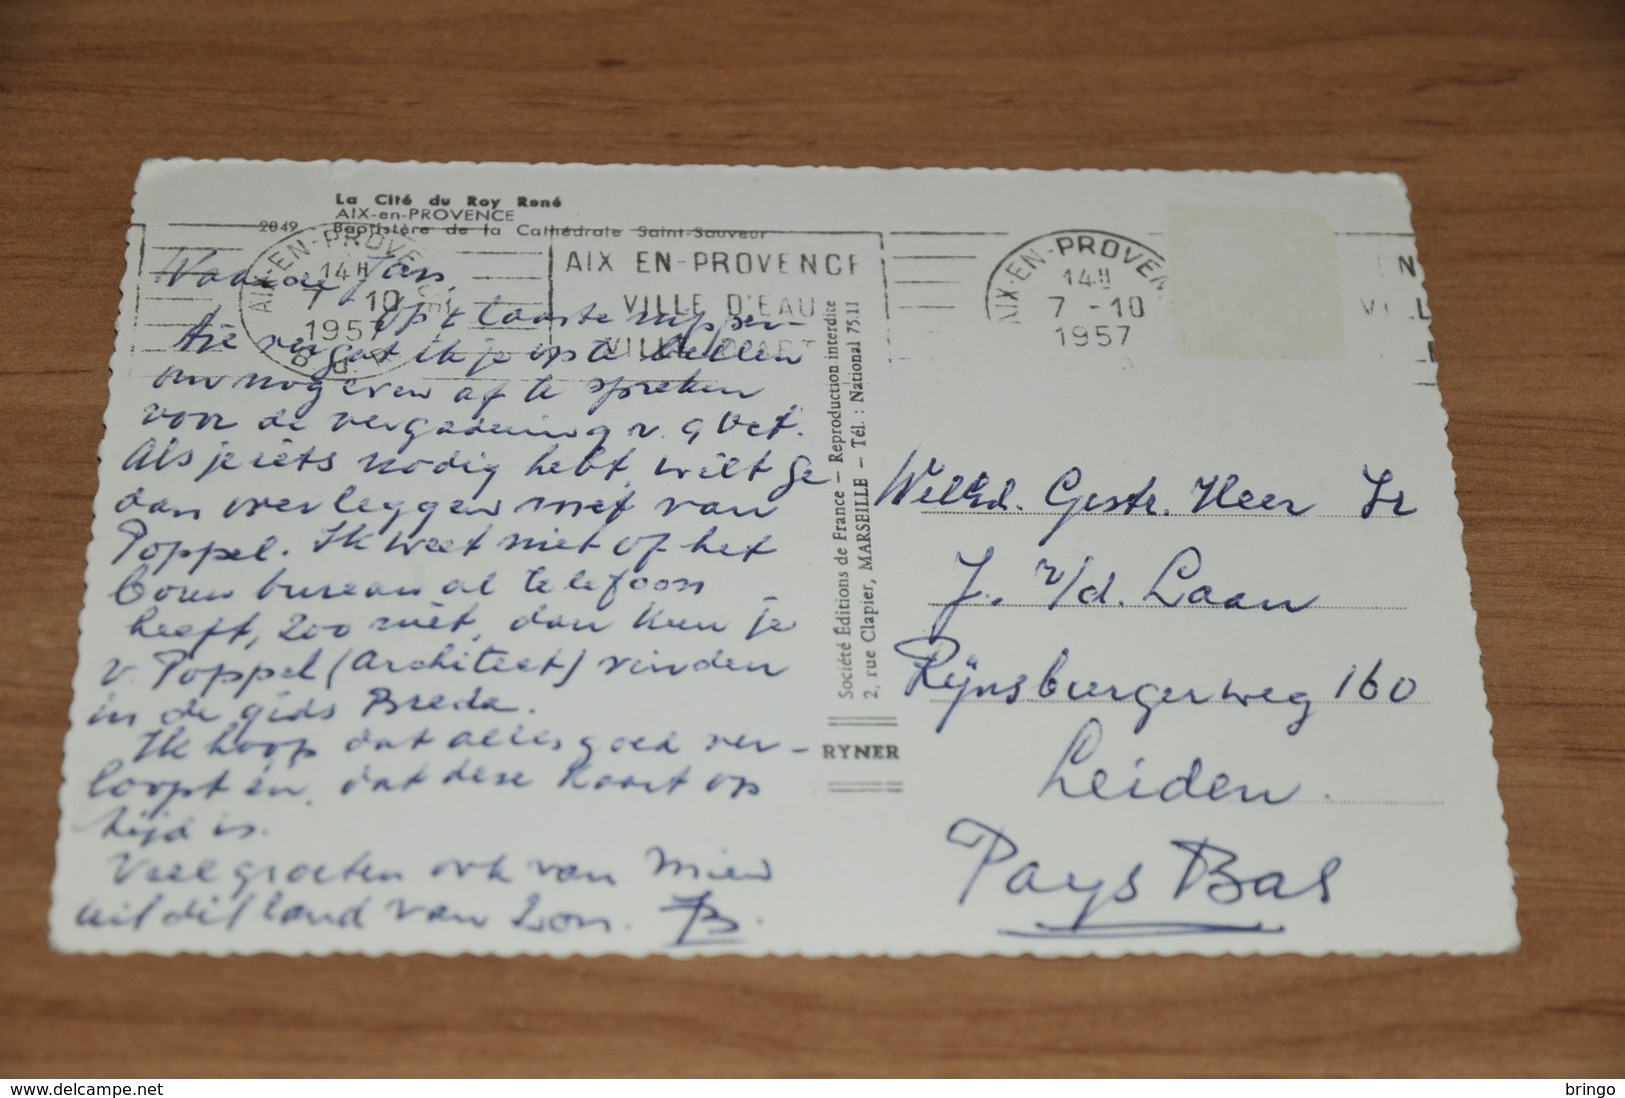 La Cité du Roy René
AIX-en-PROVENCE
2049 Baptistère de la Cathédrale Saint-Sauveur
AIX-EN-PROVENCE
14H
7 - 10
1957
AIX EN-PROVENCE
VILLE D'EAU
VILLE D'ART
AIX-EN-PROVEN
14H
7 -10
1957
EN
VILL
Waarde Jan,
Op 't laatste
vergat ik je op te bellen
om nog even af te spreken
voor de vergadering v. 9 Oct.
Als je iets nodig hebt, wilt ge
dan overleggen met van
Poppel. Ik weet niet of het
bouwbureau al telefoon
heeft, zoo niet, dan kun je
v. Poppel (Architect) vinden
in de gids Breda.
Ik hoop dat alles goed ver-
loopt en dat deze kaart op
tijd is.
Veel groeten ook van Miew
uit dit land van zon.
Société Éditions de France — Reproduction interdite
2, rue Clapier, MARSEILLE — Tél. : National 75.11
RYNER
WelEd. Gestr. Heer Ir
J. v/d. Laan
Rijnsburgerweg 160
Leiden.
Pays Bas
delcampe.net
bringo